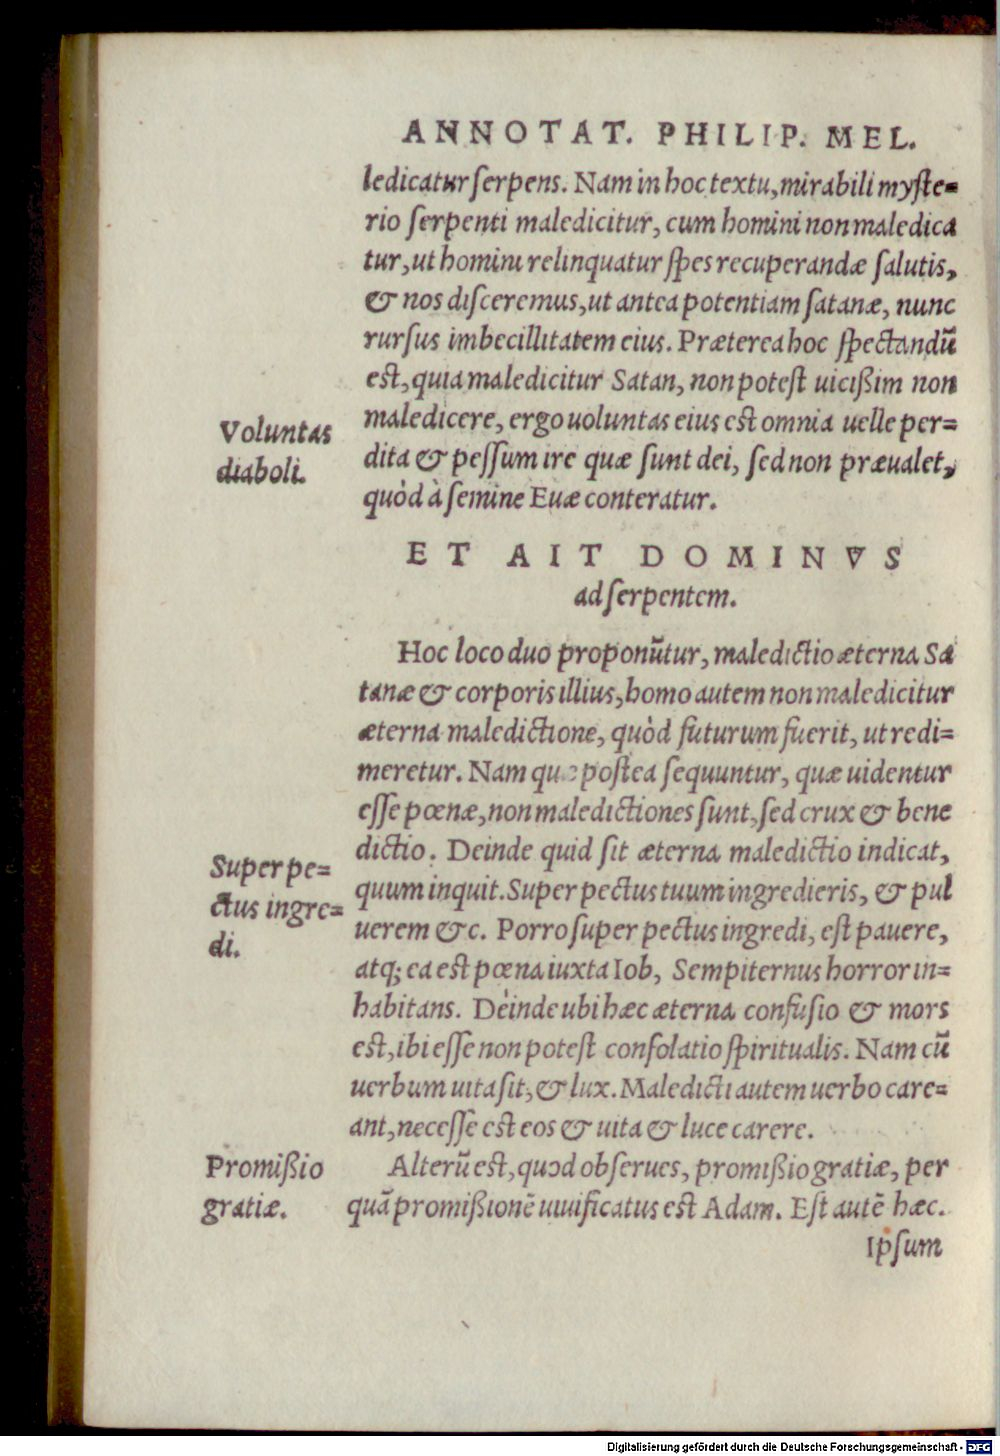 ANNOTAT. PHILIP. MEL.
ledicatur ſerpens. Nam in hoc textu, mirabili myſte=
rio ſerpenti maledicitur, cum homini non maledica
tur, ut homini relinquatur ſpes recuperandæ ſalutis,
& nos diſceremus, ut antea potentiam ſatanæ, nunc
rurſus imbecillitatem eius. Præterea hoc ſpectandū
eſt, quia maledicitur Satan, non poteſt uicißim non
Voluntas
diaboli.
maledicere, ergo uoluntas eius eſt omnia uelle per=
dita & peſſum ire quæ ſunt dei, ſed non præualet,
quòd à ſemine Euæ conteratur.
ET AIT DOMINVS
ad ſerpentem.
Hoc loco duo proponūtur, maledictio æterna Sa
tanæ & corporis illius, homo autem non maledicitur
æterna maledictione, quòd futurum fuerit, ut redi=
meretur. Nam quæ poſtea ſequuntur, quæ uidentur
eſſe pœnæ, non maledictiones ſunt, ſed crux & bene
dictio. Deinde quid ſit æterna maledictio indicat,
Super pe=
ctus ingre=
di.
quum inquit. Super pectus tuum ingredieris, & pul
uerem &c. Porro ſuper pectus ingredi, eſt pauere,
atq; ea eſt pœna iuxta Iob, Sempiternus horror in=
habitans. Deinde ubi hæc æterna confuſio & mors
eſt, ibi eſſe non poteſt conſolatio ſpiritualis. Nam cū
uerbum uita ſit, & lux. Maledicti autem uerbo care=
ant, neceſſe eſt eos & uita & luce carere.
Promißio
gratiæ.
Alterū eſt, quod obſerues, promißio gratiæ, per
quā promißionē uiuificatus eſt Adam. Eſt autē hæc.
Ipſum
Digitalisierung gefördert durch die Deutsche Forschungsgemeinschaft - DFG